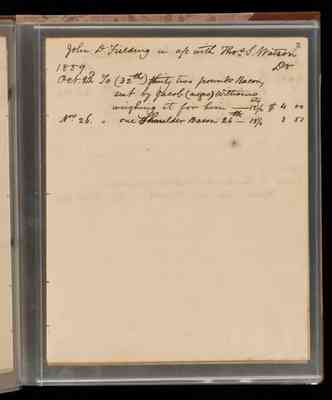 John D. Fielding in a/c with Thos. S. Watson
1859 Dr
Oct. To (32 lb) thirty two pounds Bacon,
sent by Jacob (negro)
weighing it for him 12½ $ 4 00
Nov 26. " one Shoulder Bacon 26 lb 3